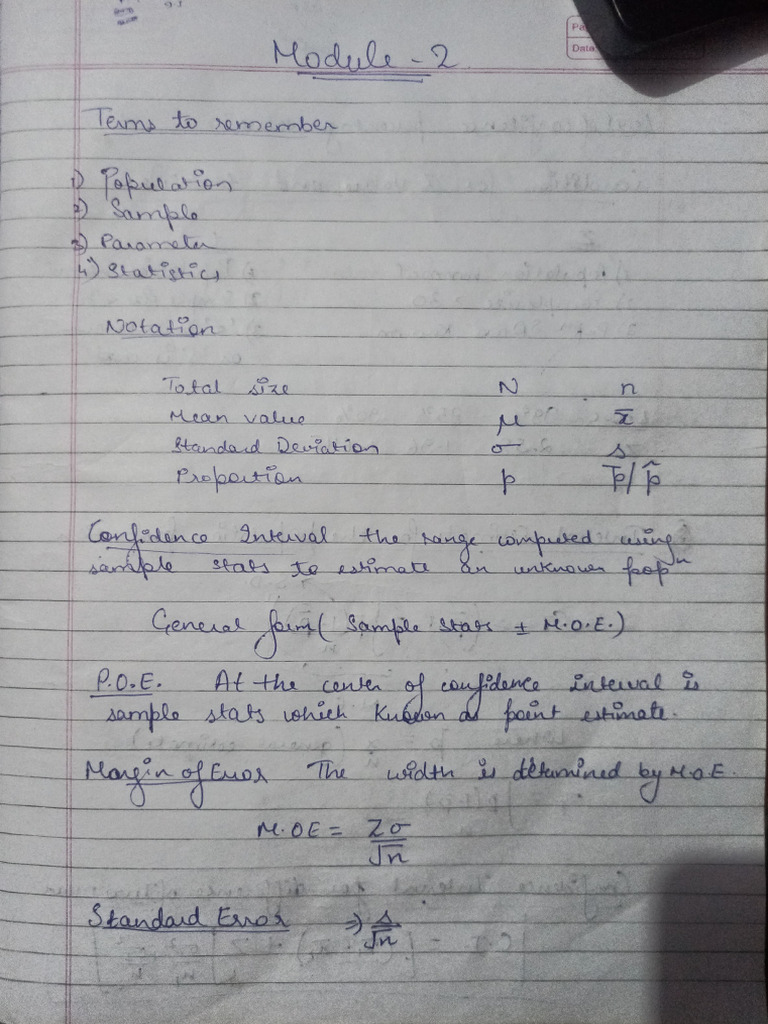 Module - 2
Terms to remember
1) Population
2) Sample
3) Parameter
4) Statistics
Notation
Total size N n
Mean value μ x̄
Standard Deviation σ s
Proportion p p̄/p̂
Confidence Interval the range computed using
sample stats to estimate an unknown popⁿ
General form ( Sample stats ± M.O.E.)
P.O.E. At the center of confidence interval is
sample stats which known as point estimate.
Margin of Error The width is determined by M.O.E.
M.OE = Zσ/√n
Standard Error ⇒ s/√n